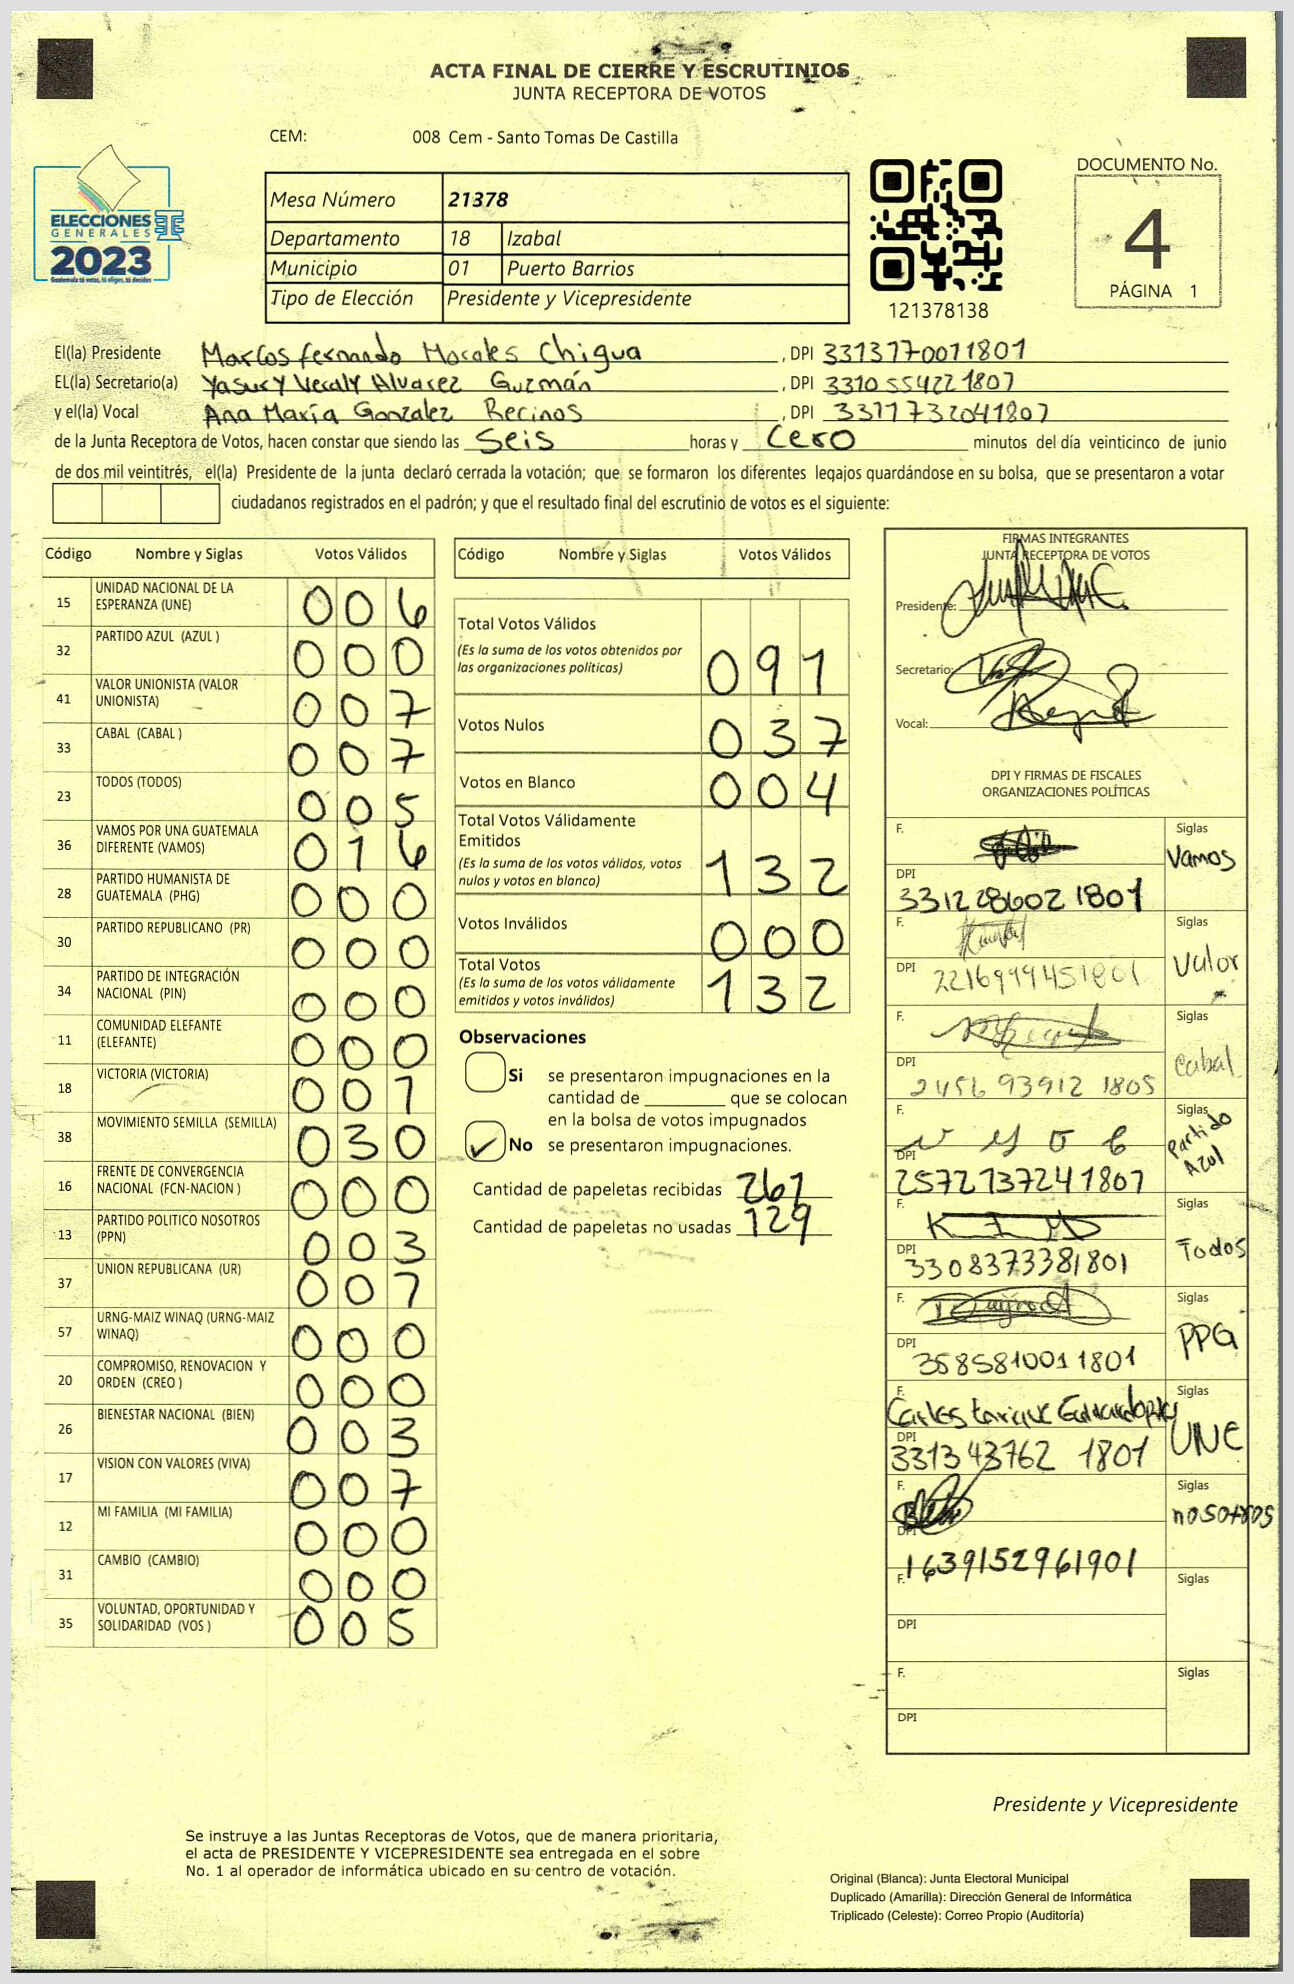 ACTA FINAL DE CIERRE Y ESCRUTINIOS
JUNTA RECEPTORA DE VOTOS
CEM: 008 Cem - Santo Tomas De Castilla
ELECCIONES
GENERALES
2023
Guatemala tú votas, tú eliges, tú decides
Mesa Número 21378
Departamento 18 Izabal
Municipio 01 Puerto Barrios
Tipo de Elección Presidente y Vicepresidente
121378138
DOCUMENTO No.
4
PÁGINA 1
El(la) Presidente Marcos fernando Morales Chigua , DPI 3313770011801
EL(la) Secretario(a) Alvarez Guzmán , DPI 3310554221807
y el(la) Vocal Ana María Gonzalez Recinos , DPI 3311732041807
de la Junta Receptora de Votos, hacen constar que siendo las Seis horas y Cero minutos del día veinticinco de junio
de dos mil veintitrés, el(la) Presidente de la junta declaró cerrada la votación; que se formaron los diferentes legajos guardándose en su bolsa, que se presentaron a votar
ciudadanos registrados en el padrón; y que el resultado final del escrutinio de votos es el siguiente:
Código Nombre y Siglas Votos Válidos
15 UNIDAD NACIONAL DE LA ESPERANZA (UNE) 006
32 PARTIDO AZUL (AZUL ) 000
41 VALOR UNIONISTA (VALOR UNIONISTA) 007
33 CABAL (CABAL ) 007
23 TODOS (TODOS) 005
36 VAMOS POR UNA GUATEMALA DIFERENTE (VAMOS) 016
28 PARTIDO HUMANISTA DE GUATEMALA (PHG) 000
30 PARTIDO REPUBLICANO (PR) 000
34 PARTIDO DE INTEGRACIÓN NACIONAL (PIN) 000
11 COMUNIDAD ELEFANTE (ELEFANTE) 000
18 VICTORIA (VICTORIA) 001
38 MOVIMIENTO SEMILLA (SEMILLA) 030
16 FRENTE DE CONVERGENCIA NACIONAL (FCN-NACION ) 000
13 PARTIDO POLITICO NOSOTROS (PPN) 003
37 UNION REPUBLICANA (UR) 001
57 URNG-MAIZ WINAQ (URNG-MAIZ WINAQ) 000
20 COMPROMISO, RENOVACION Y ORDEN (CREO ) 000
26 BIENESTAR NACIONAL (BIEN) 003
17 VISION CON VALORES (VIVA) 007
12 MI FAMILIA (MI FAMILIA) 000
31 CAMBIO (CAMBIO) 000
35 VOLUNTAD, OPORTUNIDAD Y SOLIDARIDAD (VOS ) 005
Código Nombre y Siglas Votos Válidos
Total Votos Válidos 091
(Es la suma de los votos obtenidos por
las organizaciones políticas)
Votos Nulos 037
Votos en Blanco 004
Total Votos Válidamente
Emitidos 132
(Es la suma de los votos válidos, votos
nulos y votos en blanco)
Votos Inválidos 000
Total Votos 132
(Es la suma de los votos válidamente
emitidos y votos inválidos)
Observaciones
Si se presentaron impugnaciones en la
cantidad de ________ que se colocan
en la bolsa de votos impugnados
No se presentaron impugnaciones.
Cantidad de papeletas recibidas 261
Cantidad de papeletas no usadas 129
FIRMAS INTEGRANTES
JUNTA RECEPTORA DE VOTOS
Presidente:
Secretario:
Vocal:
DPI Y FIRMAS DE FISCALES
ORGANIZACIONES POLÍTICAS
F. Siglas Vamos
DPI 3312286021801
F. Siglas Valor
DPI 2216999451801
F. Siglas Cabal
DPI 2456939121805
F. Siglas Partido Azul
DPI 2572737241807
F. Siglas Todos
DPI 3308373381801
F. Siglas PPG
DPI 3585810011801
F. Carlos Enrique Siglas UNE
DPI 3313437621801
F. Siglas nosotros
DPI 1639152961901
F. Siglas
DPI
F. Siglas
DPI
Presidente y Vicepresidente
Se instruye a las Juntas Receptoras de Votos, que de manera prioritaria,
el acta de PRESIDENTE Y VICEPRESIDENTE sea entregada en el sobre
No. 1 al operador de informática ubicado en su centro de votación.
Original (Blanca): Junta Electoral Municipal
Duplicado (Amarilla): Dirección General de Informática
Triplicado (Celeste): Correo Propio (Auditoría)